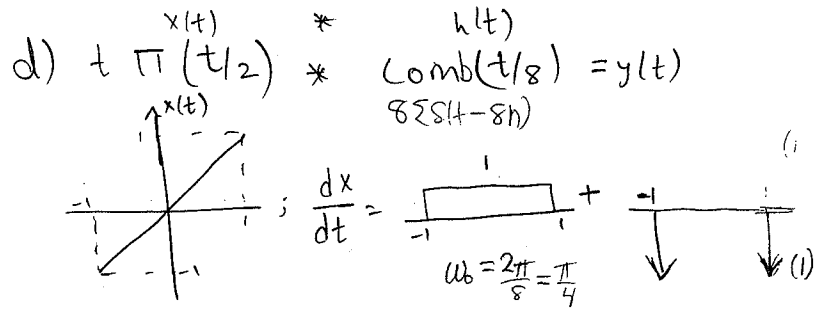 x(t) * h(t)
d) t Π(t/2) * comb(t/8) = y(t)
8Σδ(t-8n)
x(t)
1
-1
-1
; dx/dt = 1 -1 1 + -1 1 (1)
ω₀ = 2π/8 = π/4